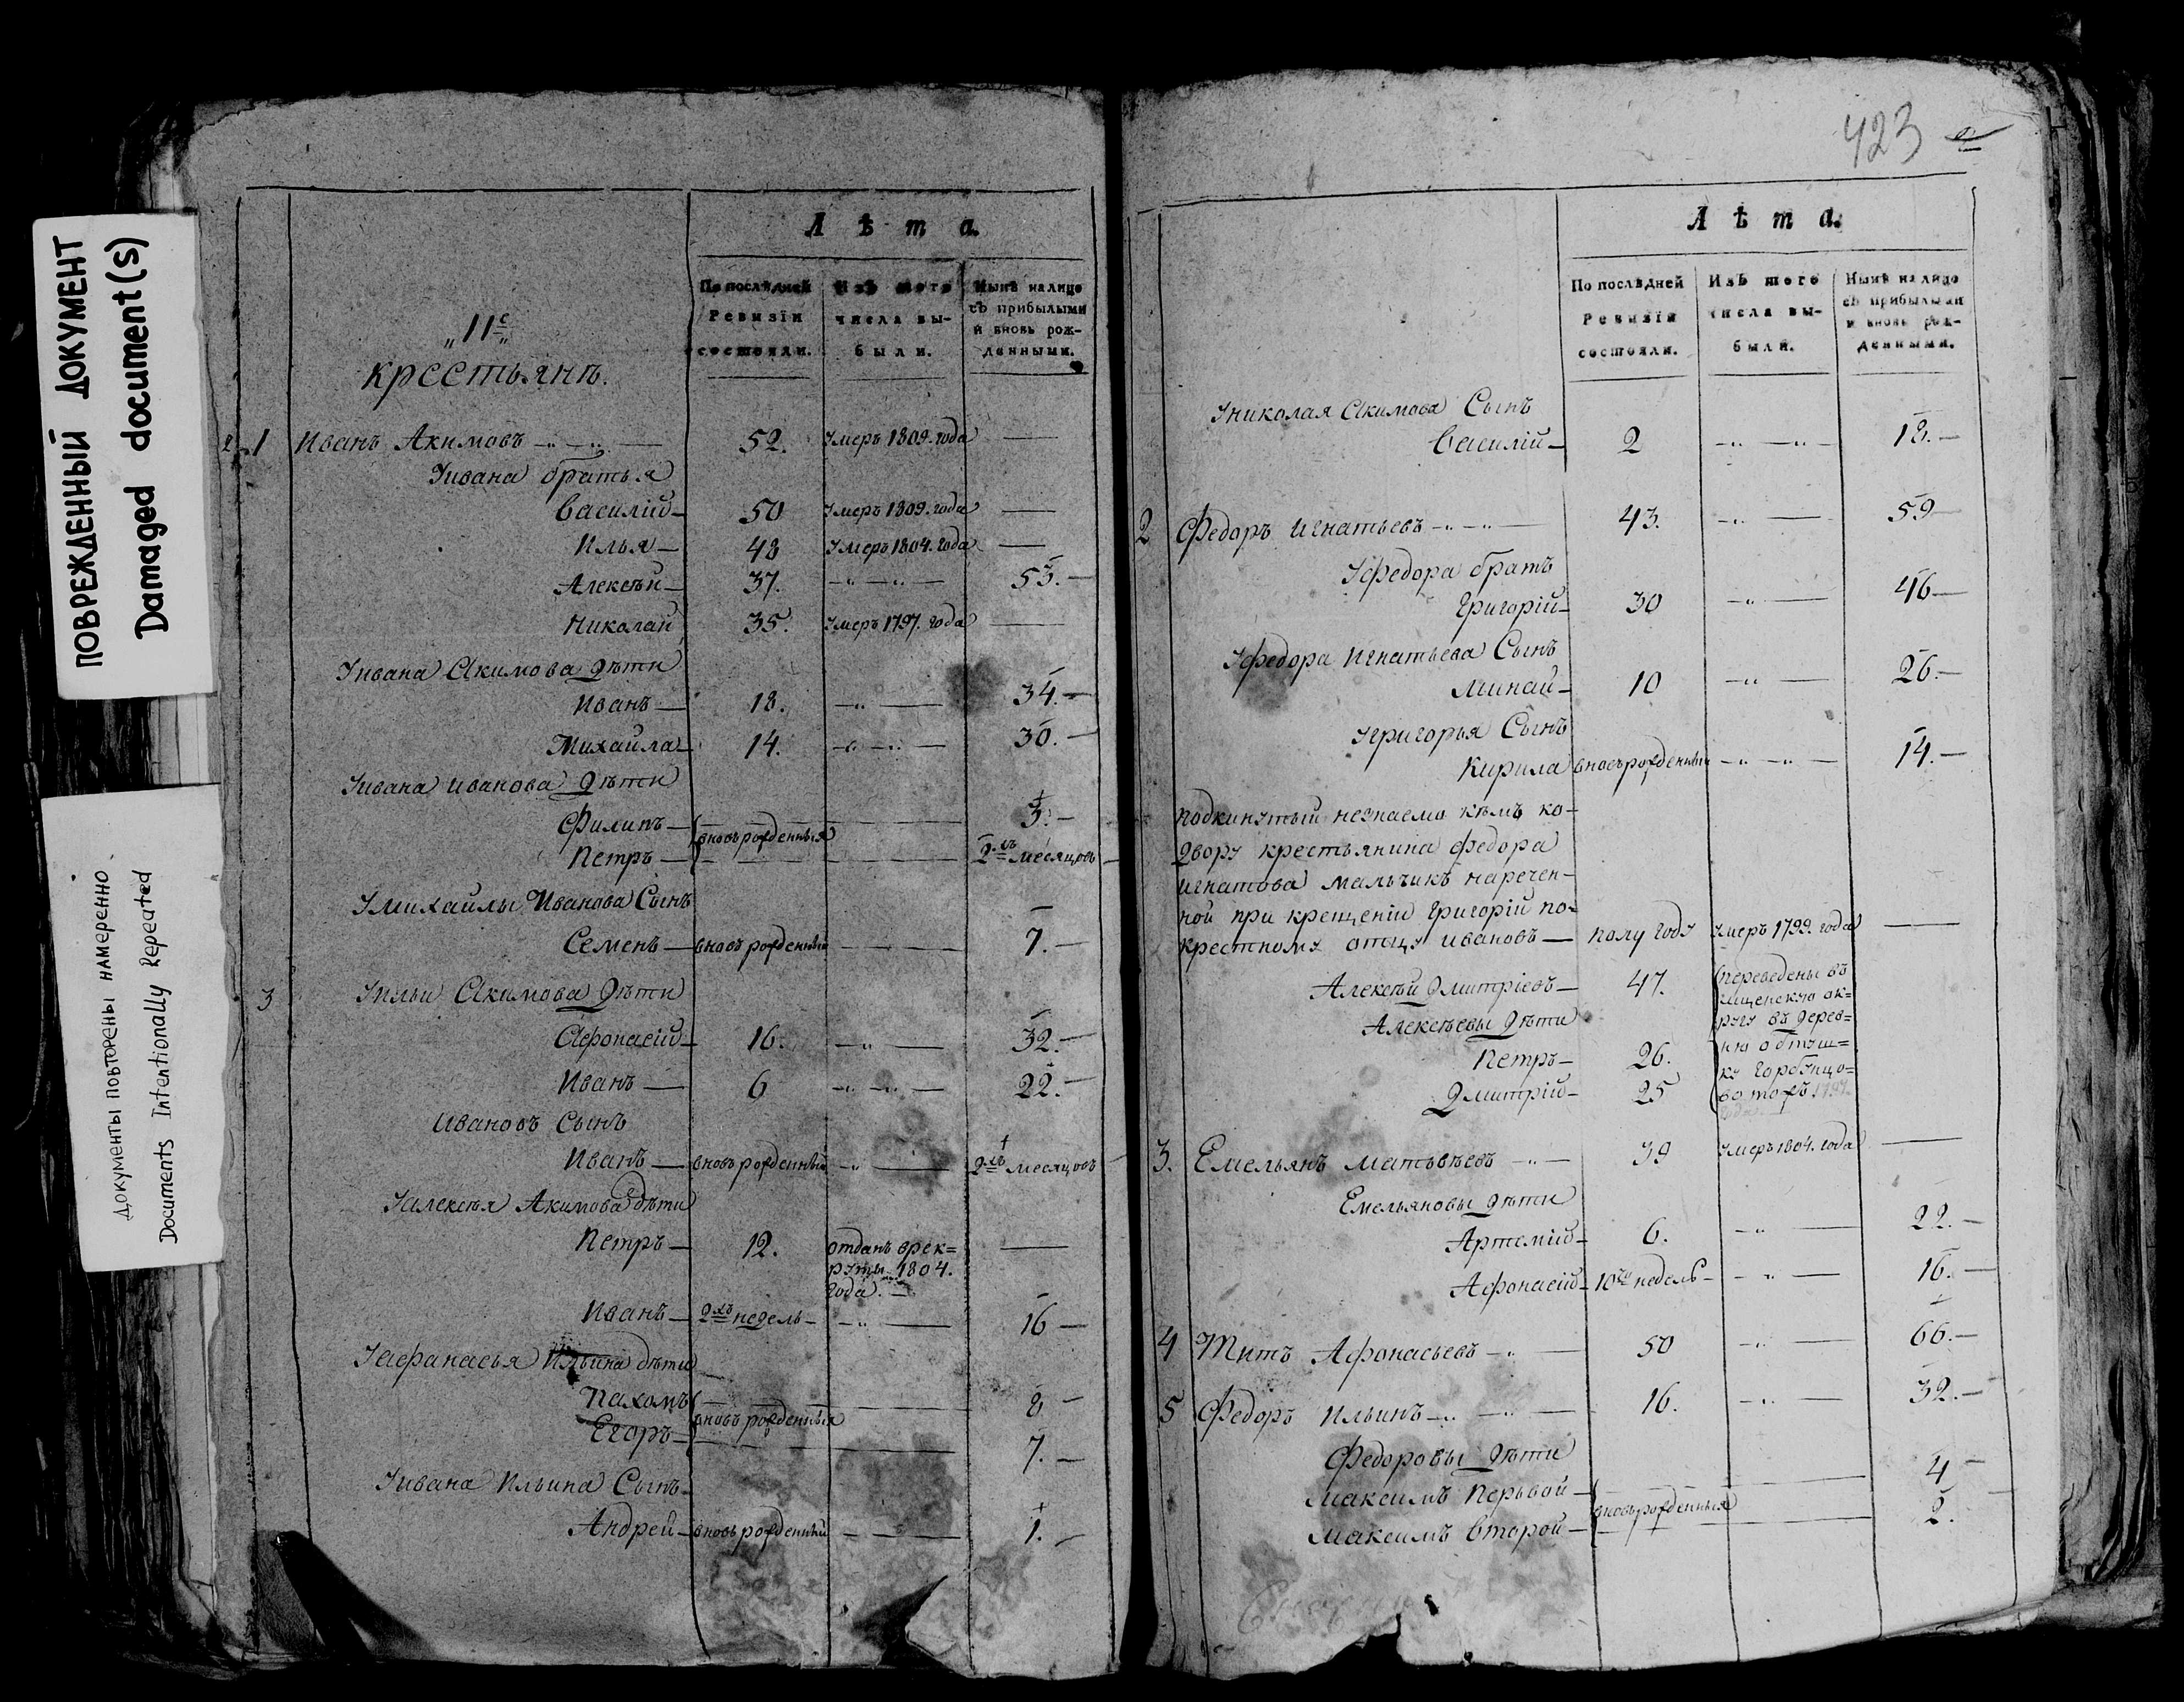 ПОВРЕЖДЕННЫЙ ДОКУМЕНТ
Damaged document(s)
Документы повторены намеренно
Documents Intentionally Repeated
Лѣта.
По послѣдней Ревизіи состояли.
Изъ того числа вы- были.
Нынѣ на лицо съ прибылыми и вновь рож- денными.
„11е„
крестьянъ.
1 Иванъ Акимовъ 52. умеръ 1809. года —
Уивана братья
Василій 50 умеръ 1809. года —
Илья 48 умеръ 1804. года —
Алексѣй 37. 53.
Николай 35. умеръ 1797. года —
Уивана Акимова дѣти
Иванъ 18. 34.
Михайла 14. 30.
Уивана Иванова дѣти
Филипъ 3.
вновьрожденныя
Петръ 2хъ месяцовъ
Умихайлы Иванова Сынъ
Семенъ вновьрожденный 7.
3 Уильи Акимова дѣти
Афонасій 16. 32.
Иванъ 6 22.
Ивановъ Сынъ
Иванъ вновьрожденный 2хъ месяцовъ
Уалексѣя Акимова дѣти
Петръ 12. отданъ врек=
руты 1804.
года.
Иванъ 2хъ недель 16
Уафанасья Ильина дѣти
Пахомъ 8
вновьрожденныя
Егоръ 7.
Уивана Ильина Сынъ
Андрей вновьрожденный 1.
423
Лѣта.
По послѣдней Ревизіи состояли.
Изъ того числа вы- были.
Нынѣ на лицо съ прибылыми и вновь рож- денными.
Униколая Акимова Сынъ
Василій 2 18.
2 Федоръ Игнатьевъ 43. 59
Уфедора братъ
Григорій 30 46
Уфедора Игнатьева Сынъ
Минай 10 26.
Угригорья Сынъ
Кирила вновьрожденный 14.
подкинутый незнаемо кѣмъ ко-
двору крестьянина Федора
Игнатова мальчикъ наречен-
ной при крещеніи Григорій по=
крестному отцу Ивановъ полу году умеръ 1799. года —
Алексѣй Дмитріевъ 47. переведены въ
Алексѣевы дѣти
Петръ 26.
Дмитрій 25
ругу въ дерев=
3. Емельянъ Матвѣевъ 39 умеръ 1804. года —
Емельяновы дѣти
Артемій 6. 22.
Афонасій 10ти недель 16.
4 Титъ Афонасьевъ 50 66.
5 Федоръ Ильинъ 16. 32.
Федоровы дѣти
Максимъ Первой 4
вновьрожденныя
Максимъ Второй 2.